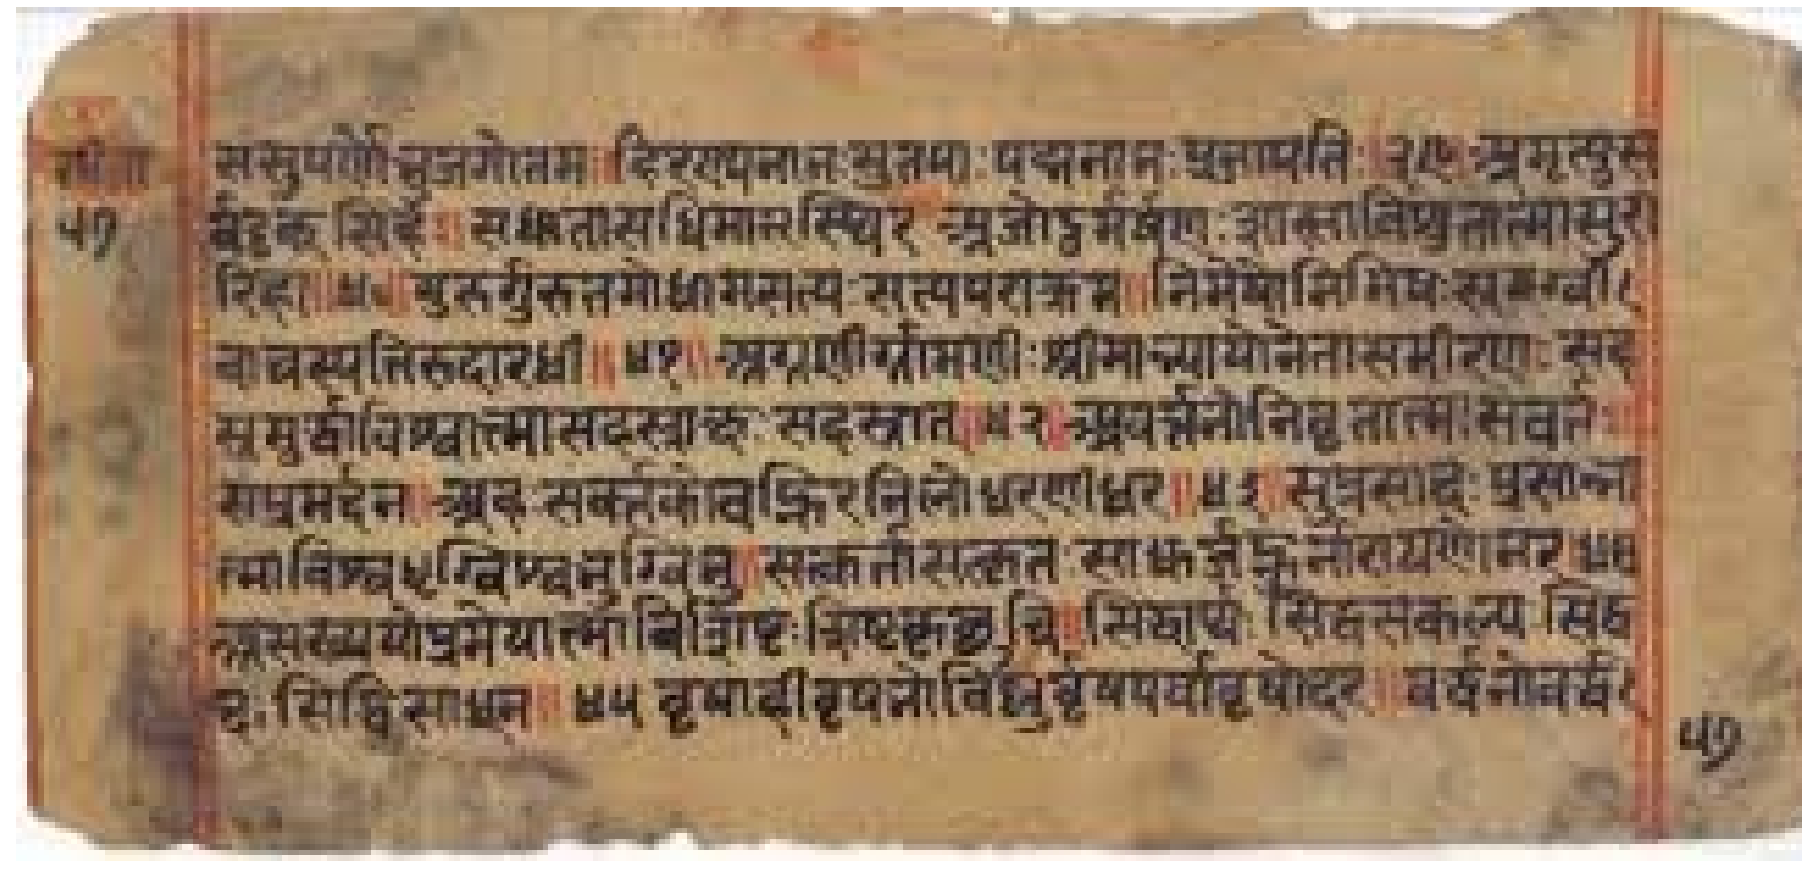 सहंसुपर्णोभुजगोत्तम ॥ हिरण्यनाभः सुतपाः पद्मनाभः प्रजापतिः ॥ ३४ ॥ अमृत्युस
र्वदृक् सिंह ॥ संधातासंधिमानस्थिर अजोदुर्मर्षणः शास्ताविश्रुतात्मासुरा
रिहा ॥ ४० ॥ गुरुर्गुरुतमोधामसत्य सत्यपराक्रम ॥ निमेषोनिमिषः स्रग्वी
वाचस्पतिरुदारधी ॥ ४१ ॥ अग्रणीर्ग्रामणीः श्रीमान्न्यायोनेतासमीरणः सह
स्रमुर्द्धाविश्वात्मासहस्राक्षः सहस्रपात् ॥ ४२ ॥ आवर्त्तनोनिवृतात्मासंवृतः
संप्रमर्दन ॥ अहः सवर्तकोवह्निरनिलोधरणीधर ॥ ४३ ॥ सुप्रसादः प्रसन्ना
त्माविश्वधृग्विश्वभुग्विभु ॥ सत्कर्तासत्कृत साधुर्जह्नुर्नारायणोनर ४४
असंख्येयोप्रमेयात्मा विशिष्टः शिष्टकृछुचि ॥ सिद्धार्थः सिद्धसंकल्प सिद्धि
दः सिद्धिसाधन ॥ ४५ वृषाहीवृषभोविष्णुर्वृषपर्वावृषोदर ॥ वर्द्धनोवर्द्ध
५७
५७